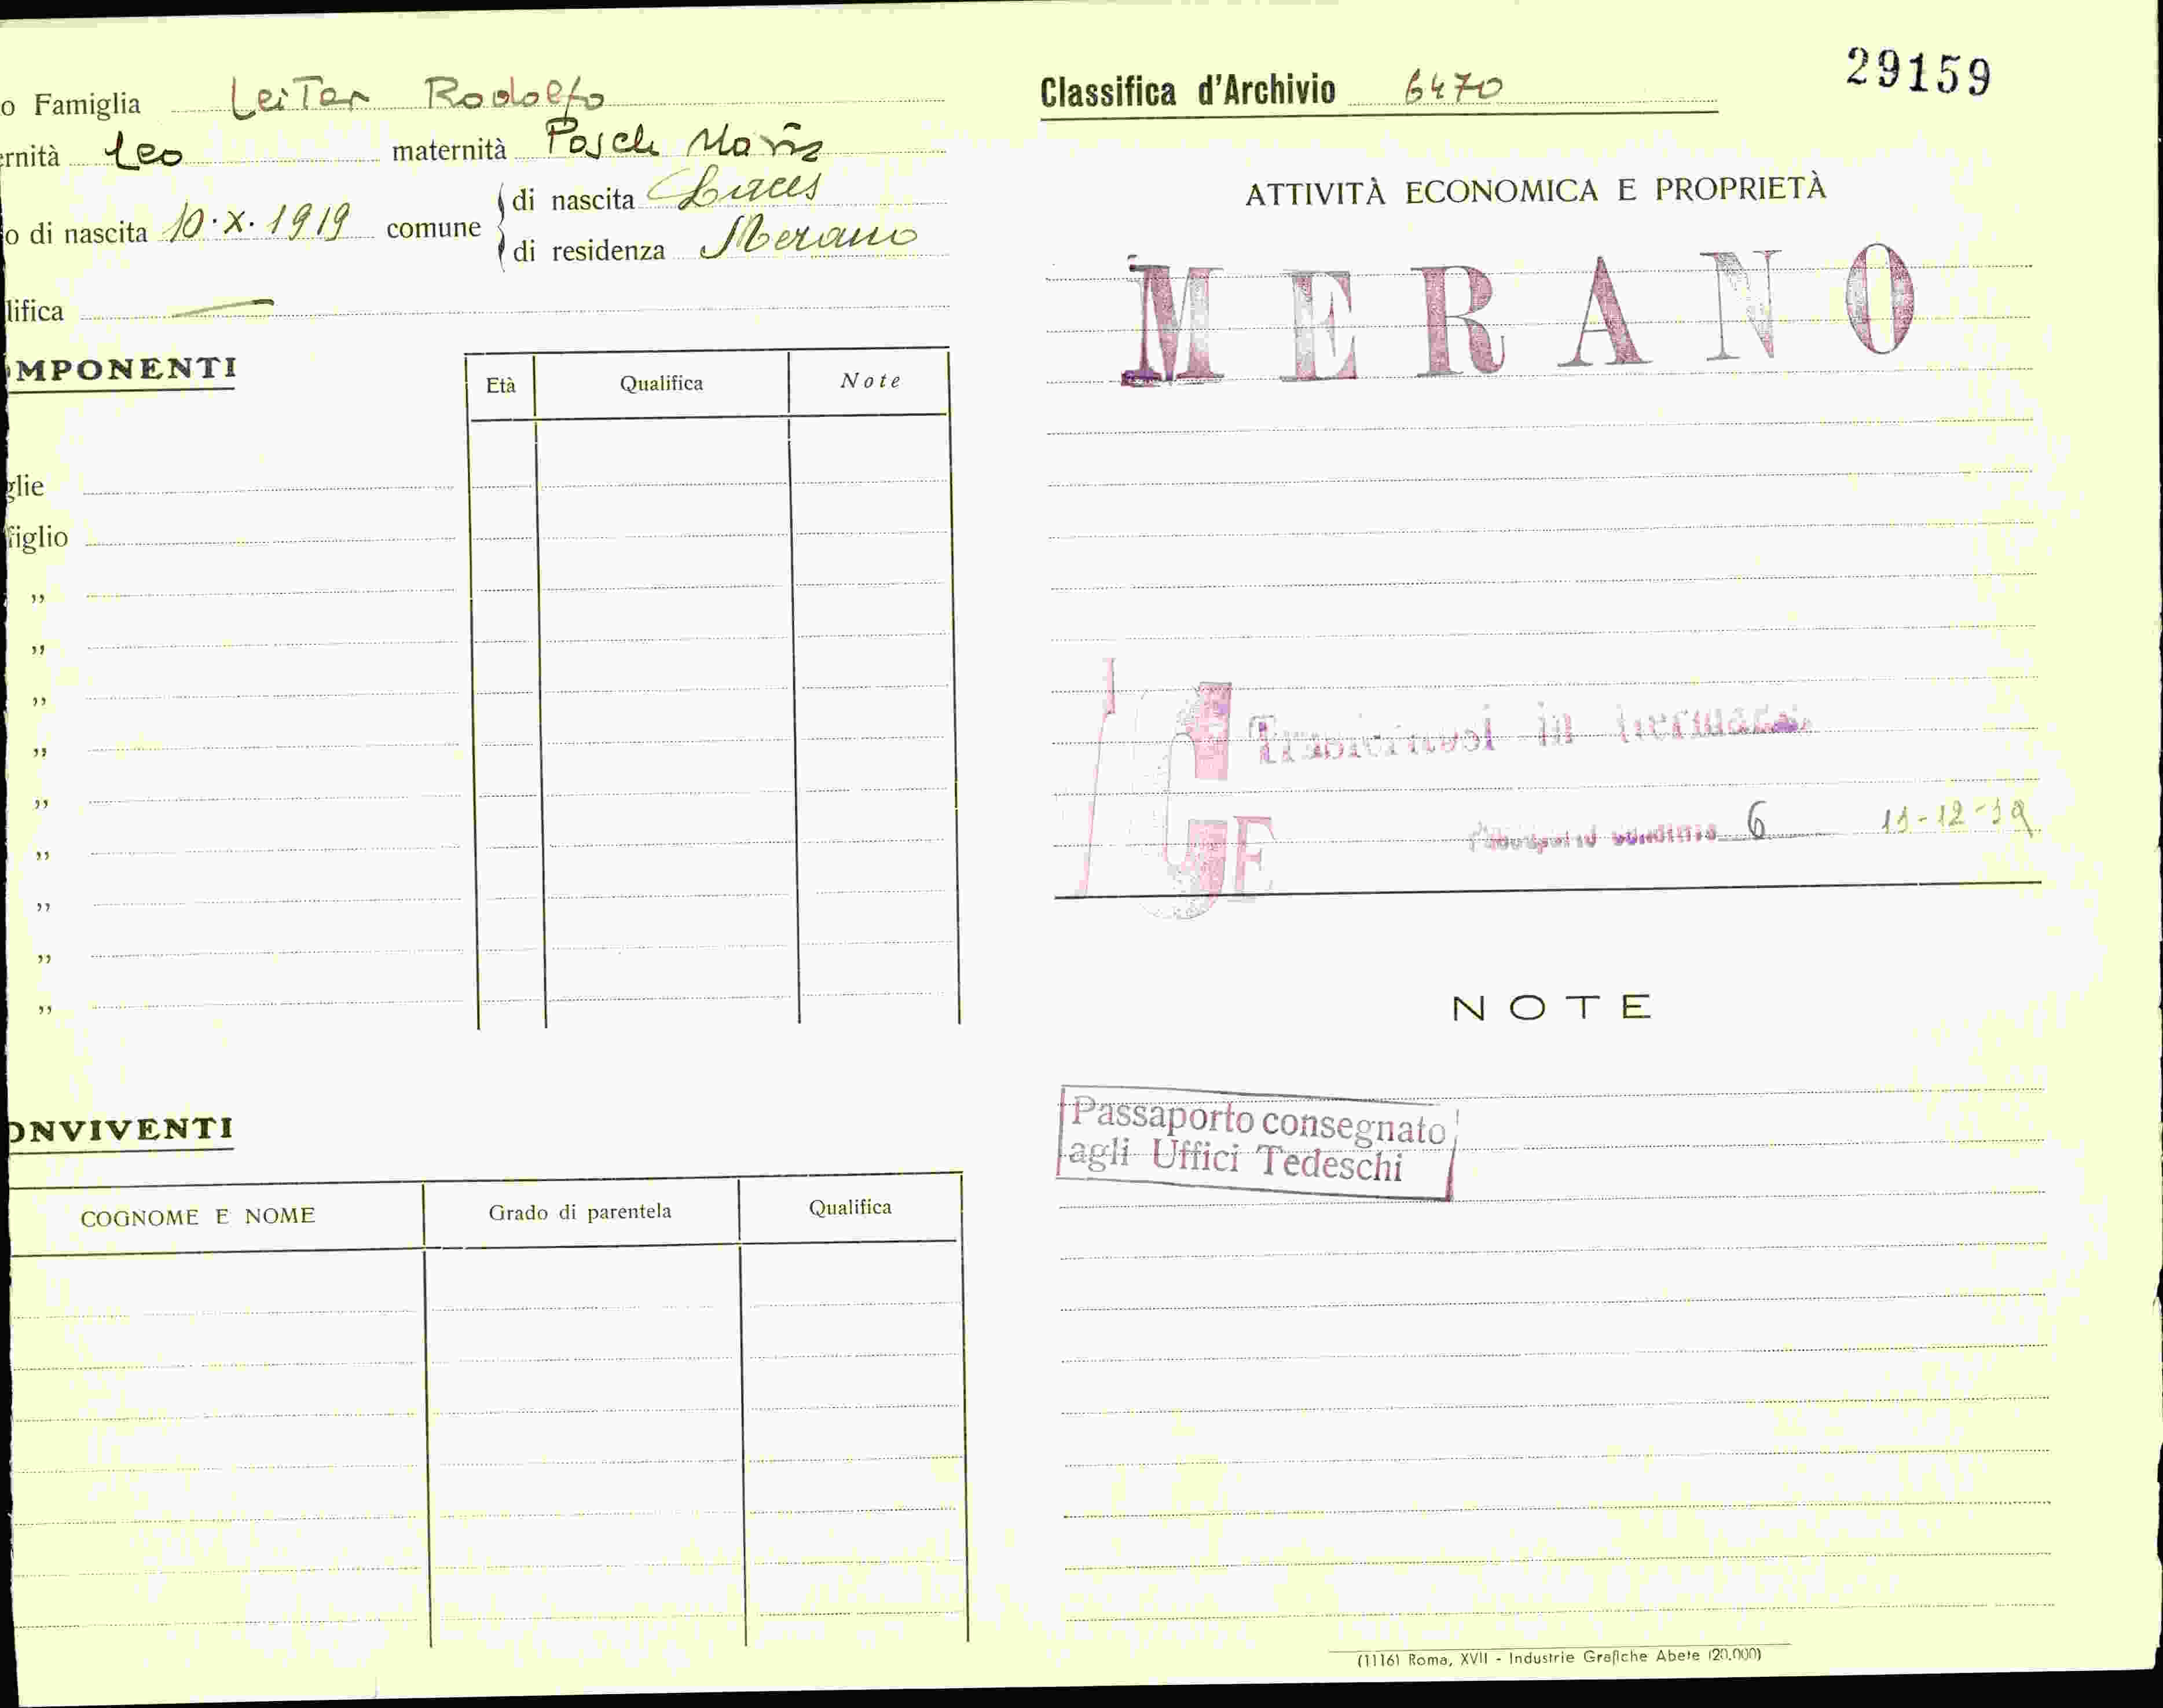 o Famiglia Leiter Rodolfo
ernità Leo maternità Posch Maria
o di nascita 10.X.1919 comune di nascita Laces
di residenza Merano
lifica —
OMPONENTI
Età Qualifica Note
glie
figlio
„
„
„
„
„
„
„
„
„
ONVIVENTI
COGNOME E NOME Grado di parentela Qualifica
29159
Classifica d'Archivio 6470
ATTIVITÀ ECONOMICA E PROPRIETÀ
MERANO
in
GE
6
NOTE
Passaporto consegnato
agli Uffici Tedeschi
(1116) Roma, XVII - Industrie Grafiche Abete (20.000)